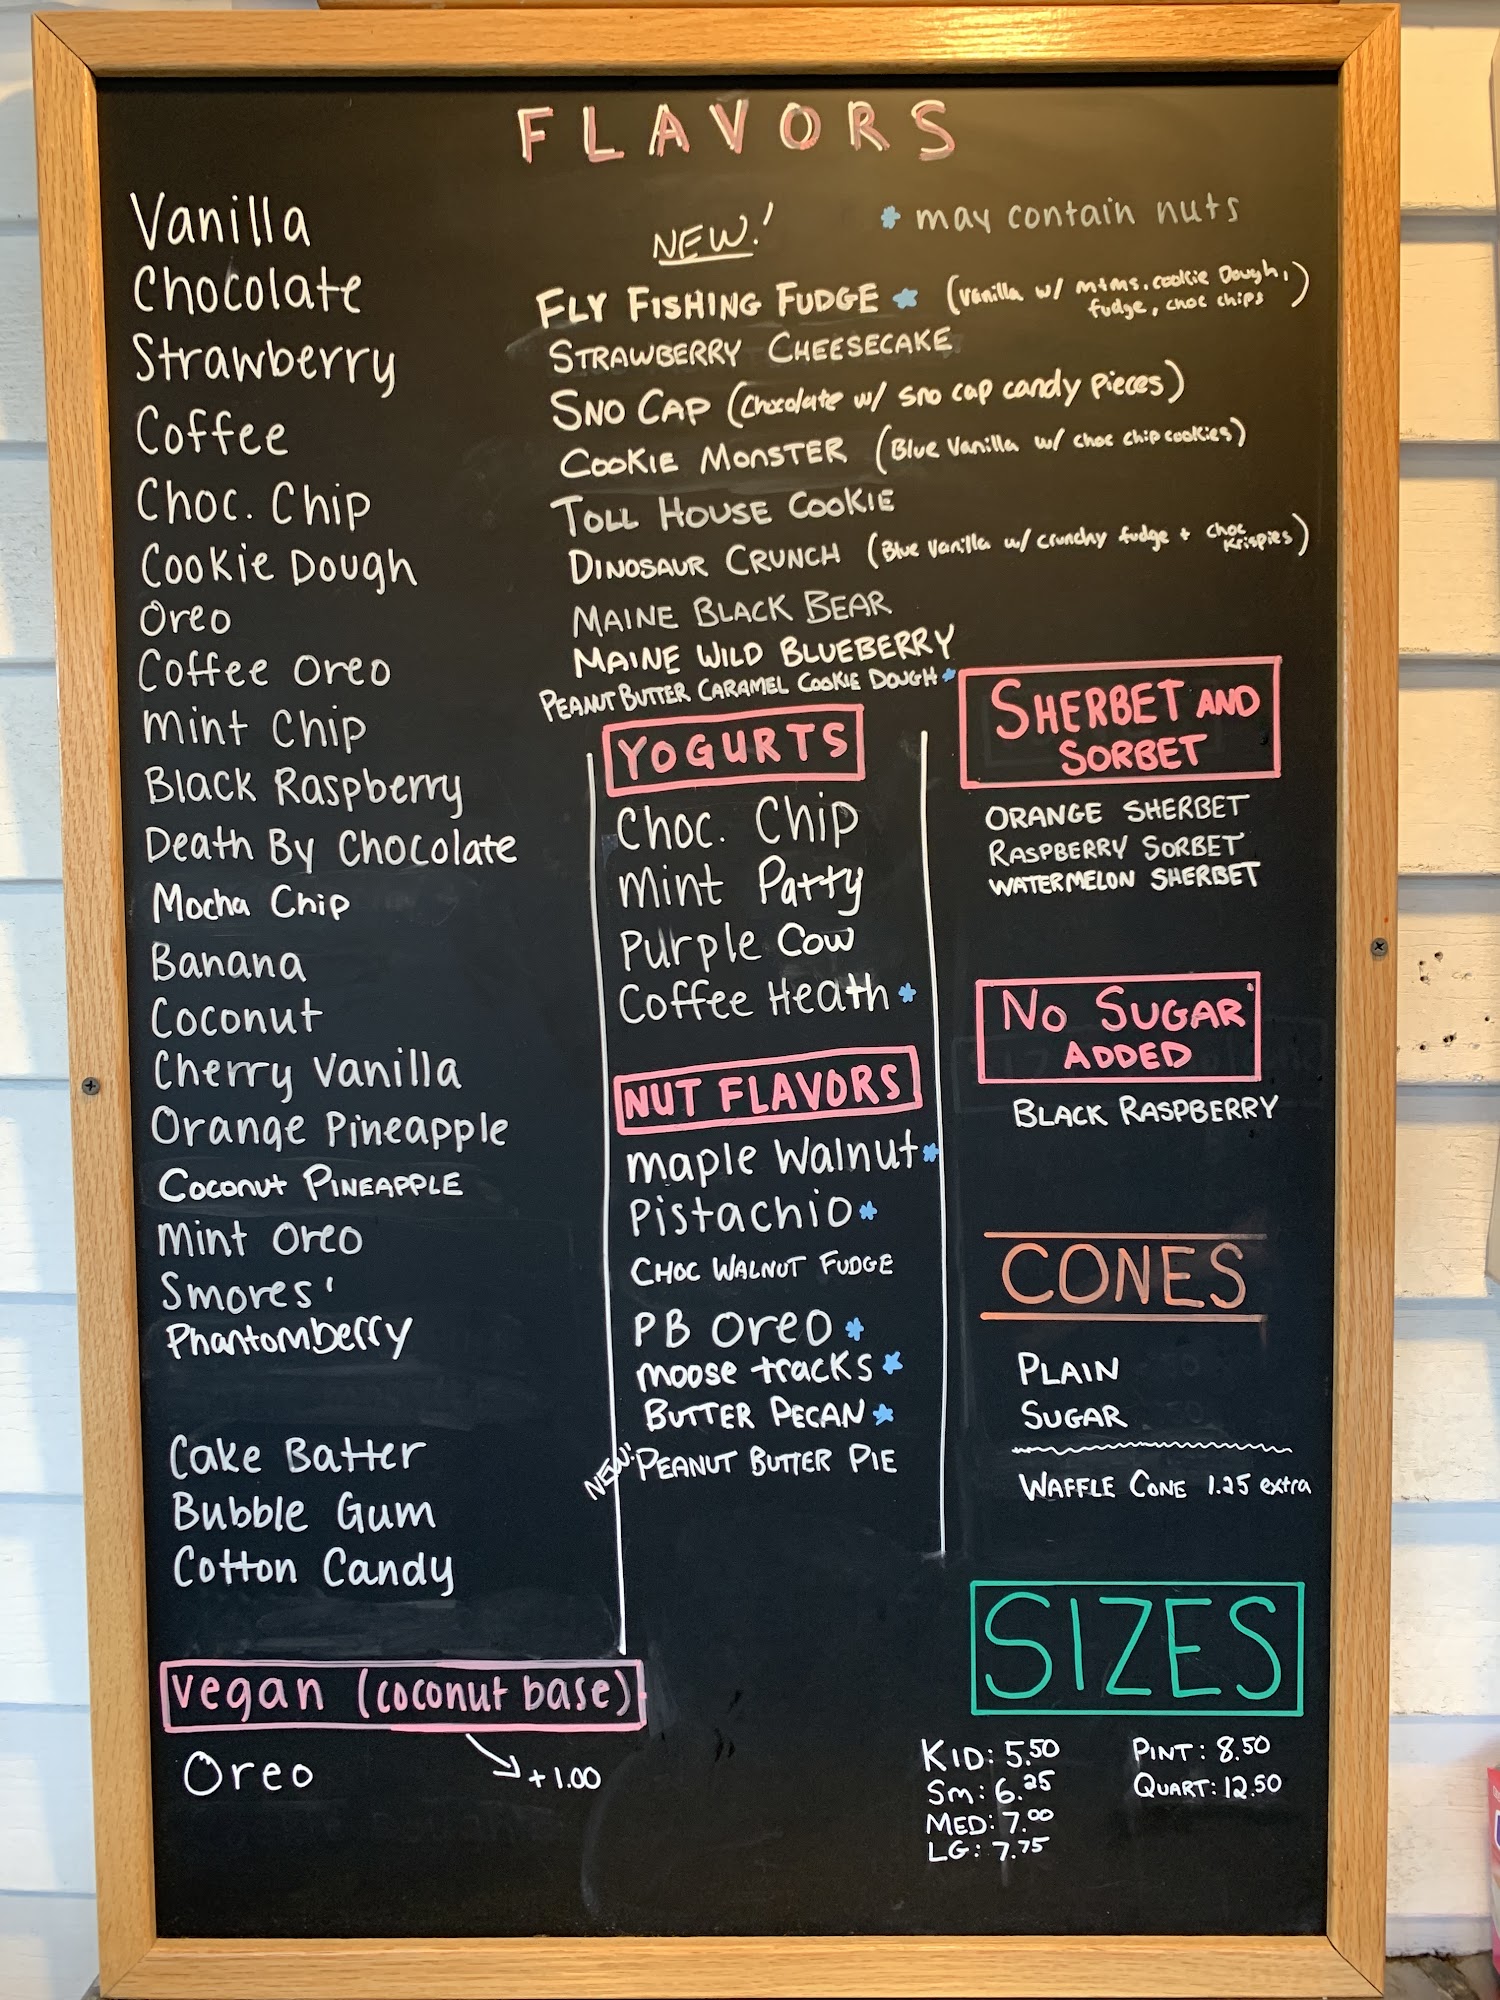 FLAVORS
Vanilla
Chocolate
Strawberry
Coffee
Choc. Chip
Cookie Dough
Oreo
Coffee Oreo
Mint Chip
Black Raspberry
Death By Chocolate
Mocha Chip
Banana
Coconut
Cherry Vanilla
Orange Pineapple
Coconut PINEAPPLE
Mint Oreo
Smores'
Phantomberry
Cake Batter
Bubble Gum
Cotton Candy
vegan (coconut base)
Oreo
+1.00
NEW!
* may contain nuts
FLY FISHING FUDGE * (vanilla w/ m+ms, cookie Dough,
fudge, choc chips)
STRAWBERRY CHEESECAKE
SNO CAP (chocolate w/ sno cap candy pieces)
COOKIE MONSTER (Blue Vanilla w/ choc chip cookies)
TOLL HOUSE COOKIE
DINOSAUR CRUNCH (Blue Vanilla w/ crunchy fudge + choc
krispies)
MAINE BLACK BEAR
MAINE WILD BLUEBERRY
PEANUT BUTTER CARAMEL COOKIE DOUGH *
YOGURTS
Choc. Chip
Mint Patty
Purple Cow
Coffee Heath *
NUT FLAVORS
maple Walnut *
Pistachio *
CHOC WALNUT FUDGE
PB Oreo *
moose tracks *
BUTTER PECAN *
NEW! PEANUT BUTTER PIE
SHERBET AND
SORBET
ORANGE SHERBET
RASPBERRY SORBET
WATERMELON SHERBET
NO SUGAR
ADDED
BLACK RASPBERRY
CONES
PLAIN
SUGAR
WAFFLE CONE 1.25 extra
SIZES
KID: 5.50
Sm: 6.25
MED: 7.00
LG: 7.75
PINT: 8.50
QUART: 12.50